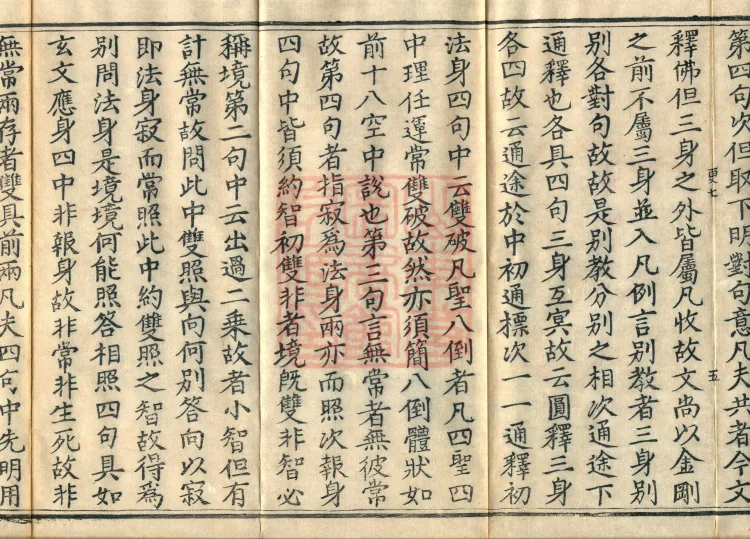 第四句次但取下明對句意凡夫共者今文
釋佛但三身之外皆屬凡收故文尚以金剛
之前不屬三身並入凡例言別教者三身別
別各對句故故是別教分別之相次通途下
通釋也各具四句三身互冥故云圓釋三身
各四故云通途於中初通標次一一通釋初
法身四句中云雙破凡聖八倒者凡四聖四
中理任運常雙破故然亦須簡八倒體狀如
前十八空中說也第三句言無常者無彼常
故第四句者指寂為法身兩亦而照次報身
四句中皆須約智初雙非者境既雙非智必
稱境第二句中云出過二乘故者小智但有
計無常故問此中雙照與向何別答向以寂
即法身寂而常照此中約雙照之智故得為
別問法身是境境何能照答相照四句具如
玄文應身四中非報身故非常非生死故非
無常兩存者雙具前兩凡夫四句中先明用
更七
五